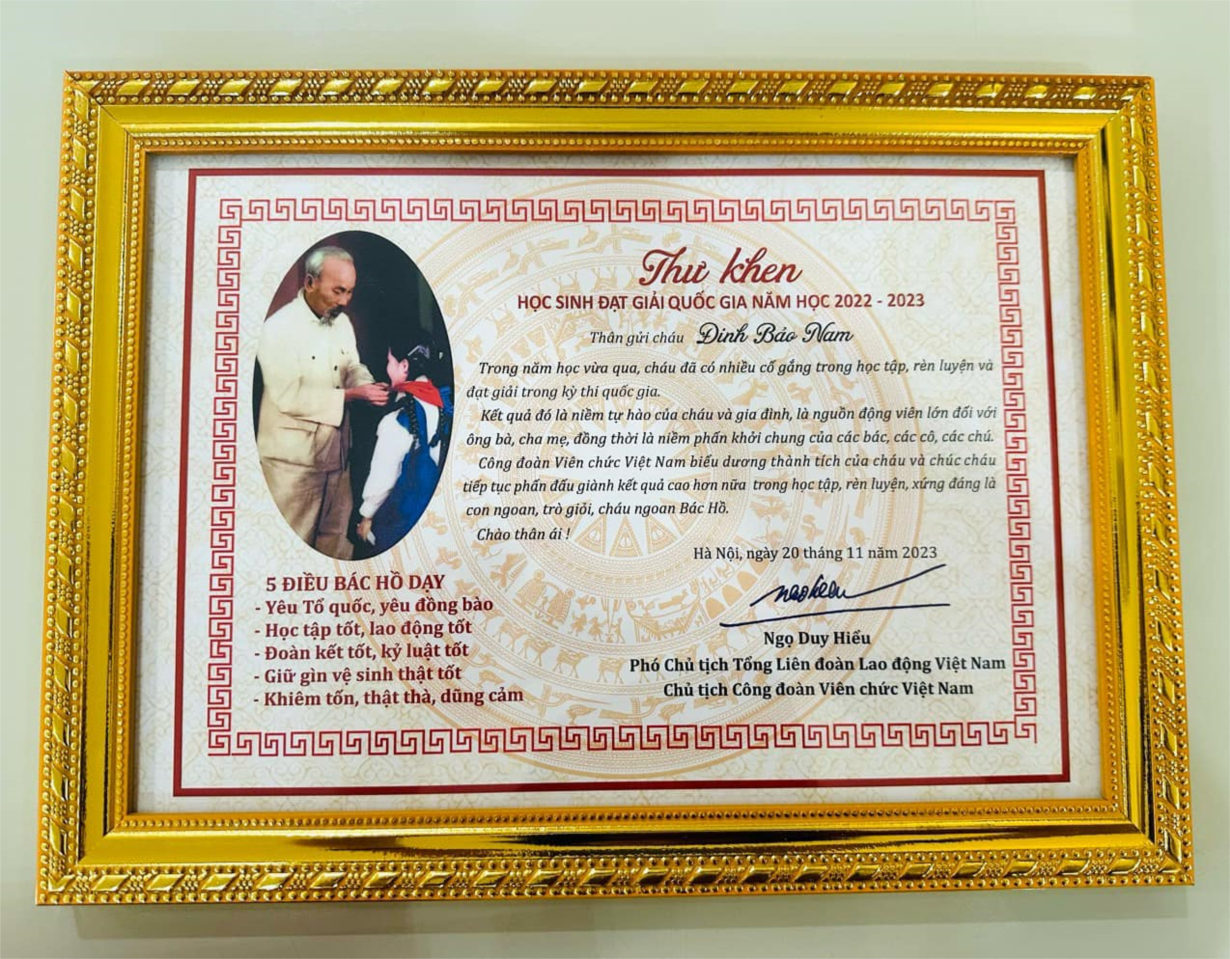 Thư khen
HỌC SINH ĐẠT GIẢI QUỐC GIA NĂM HỌC 2022 - 2023
Thân gửi cháu Đinh Bảo Nam
Trong năm học vừa qua, cháu đã có nhiều cố gắng trong học tập, rèn luyện và
đạt giải trong kỳ thi quốc gia.
Kết quả đó là niềm tự hào của cháu và gia đình, là nguồn động viên lớn đối với
ông bà, cha mẹ, đồng thời là niềm phấn khởi chung của các bác, các cô, các chú.
Công đoàn Viên chức Việt Nam biểu dương thành tích của cháu và chúc cháu
tiếp tục phấn đấu giành kết quả cao hơn nữa trong học tập, rèn luyện, xứng đáng là
con ngoan, trò giỏi, cháu ngoan Bác Hồ.
Chào thân ái !
Hà Nội, ngày 20 tháng 11 năm 2023
Ngọ Duy Hiểu
Phó Chủ tịch Tổng Liên đoàn Lao động Việt Nam
Chủ tịch Công đoàn Viên chức Việt Nam
5 ĐIỀU BÁC HỒ DẠY
- Yêu Tổ quốc, yêu đồng bào
- Học tập tốt, lao động tốt
- Đoàn kết tốt, kỷ luật tốt
- Giữ gìn vệ sinh thật tốt
- Khiêm tốn, thật thà, dũng cảm